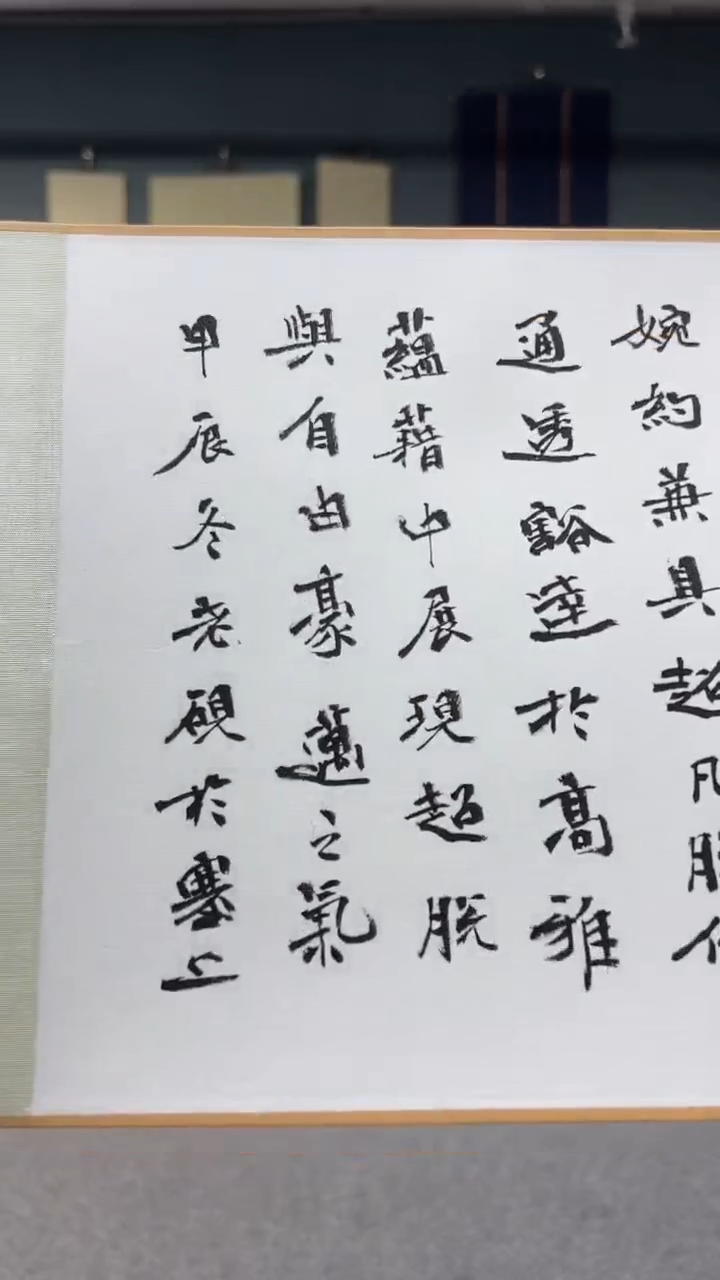 婉約兼具超凡脫俗
通透豁達於高雅
蘊藉中展現超脫
與自由豪邁之氣
甲辰冬老硯於塞上